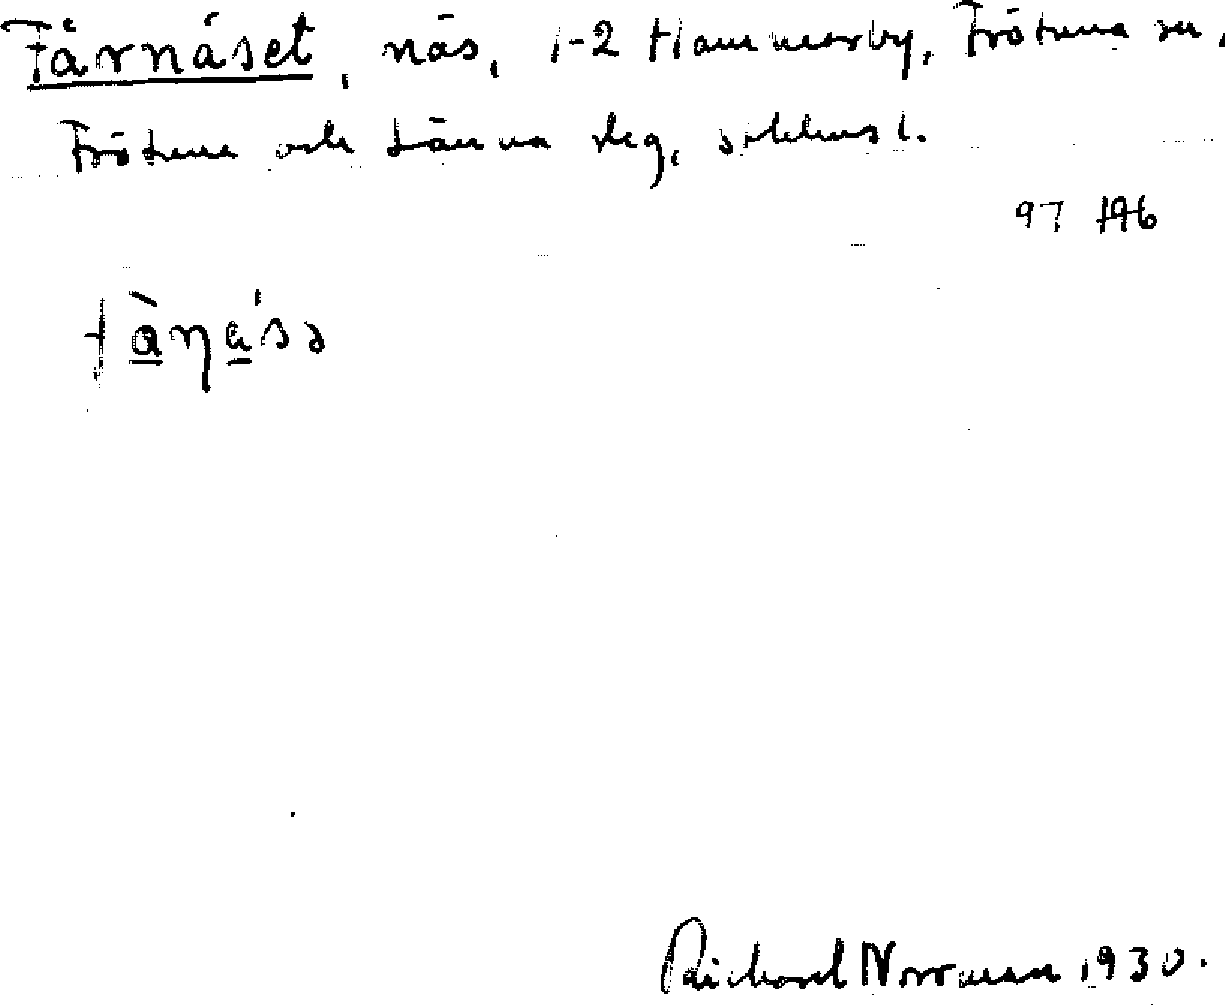 Fårnäset, näs, 1-2 Hammarby, Frötuna sn,
Frötuna och Länna skg, Sthlms l.
97 196
Richard Norrman 1930.